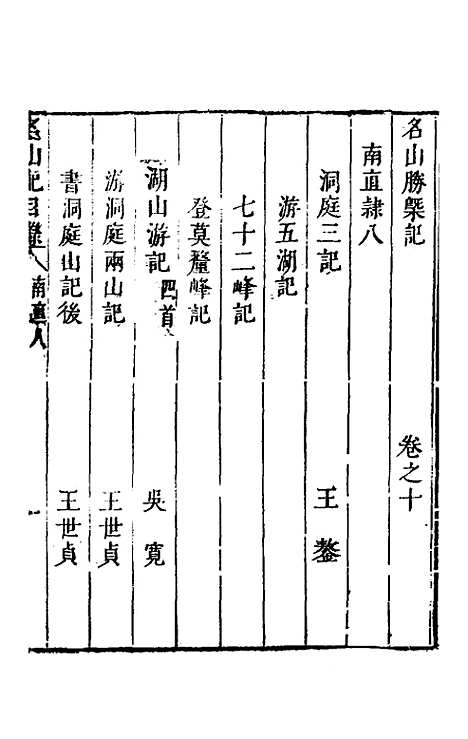 名山勝槩記　卷之十
南直隸八
洞庭三記　王鏊
游五湖記
七十二峰記
登莫釐峰記
湖山游記四首　吳寬
游洞庭兩山記　王世貞
書洞庭山記後　王世貞
名山記目錄　南直八　一